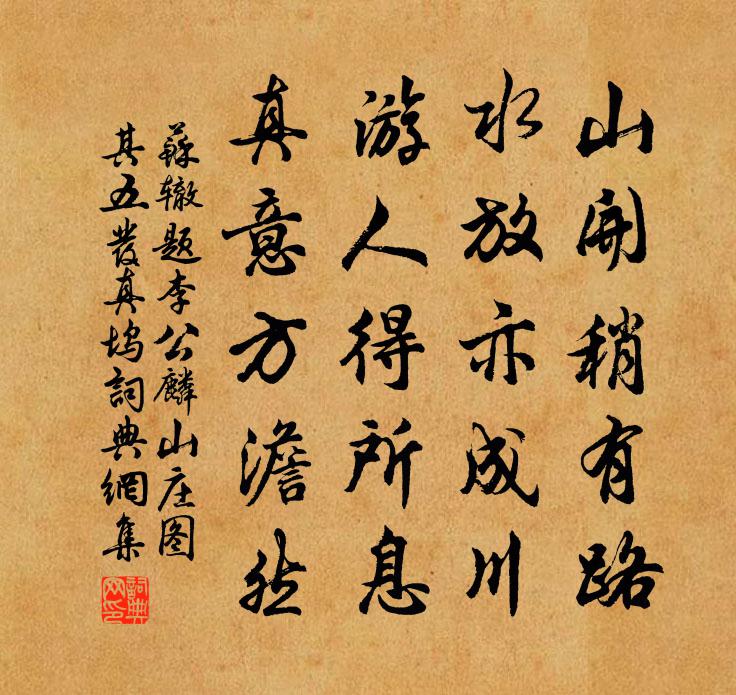 山開稍有路
水放亦成川
游人得所息
真意方澹然
蘇辙题李公麟山庄图
其五發真塢詞典網集
詞典
网印